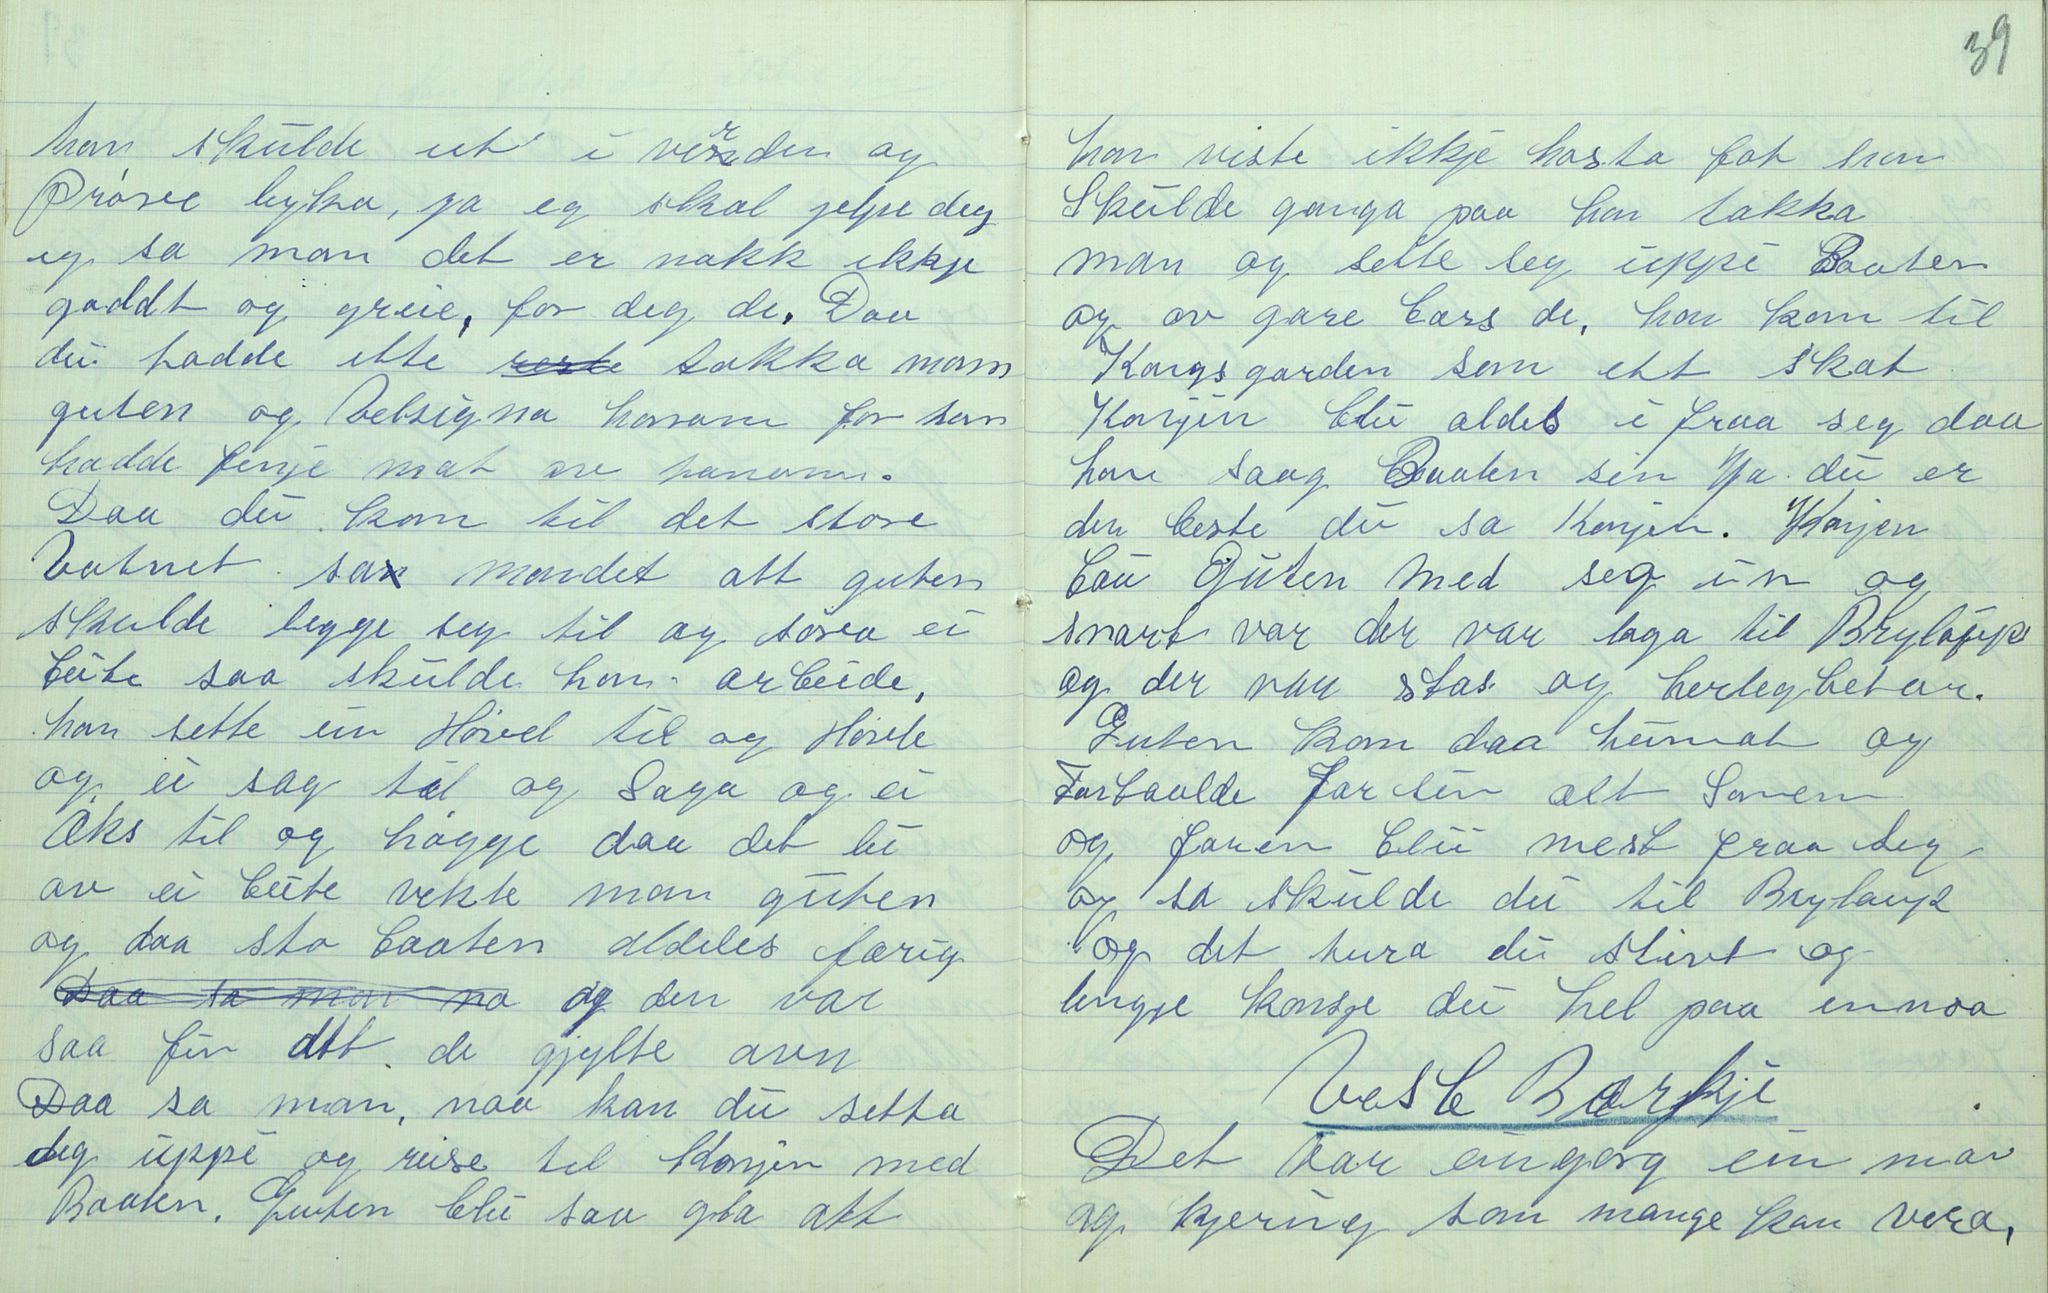 han skulde ut i verden og
Prøvee lyka, ja eg skal jelpe deg
eg sa man det er nokk ikkje
goddt og greie, for deg de. Daa
dii hadde itte takka mann
guten og Velsigna honom for han
hadde fenje mat av hanom.
Daa dii kom til det store
Vatnet sa mandet att guten
skulde legge seg til og sova ei
biite saa skulde han arbeide,
han sette ein Høvel til og Høvle
og ei sag til og Saga og ei
Øks til og høgge daa det lei
av ei biite vekte man guten
og daa sto baaten aldeles færig
og den var
saa fin att de gjylte aven
Daa sa man, naa kan dii setta
deg uppi og reise til Konjen med
Baaten. Guten blii saa gla att
39
han viste ikkje hosta fot han
Skulde ganga paa han takka
man og sette seg uppi Baaten
og av gare bars de, han kom til
Kongsgarden som ett skot
Konjin blii aldels i fraa seg daa
han saag Baaten sin Ja dii er
den beste dii sa Konjen. Konjen
bau Guten med seg in og
snart var der var laga til Bryløpp
og der var stas og herleghetar.
Guten kom daa heimat og
Fortaalde Far sin alt Samen
og faren blii mest fraa seg
og sa skulde dii til Brylaup
og det tura dii stivt og
lengje konsje dii hel paa ennaa
Vesle Borkje
Det var eingong ein man
og kjering som mange kan vera,